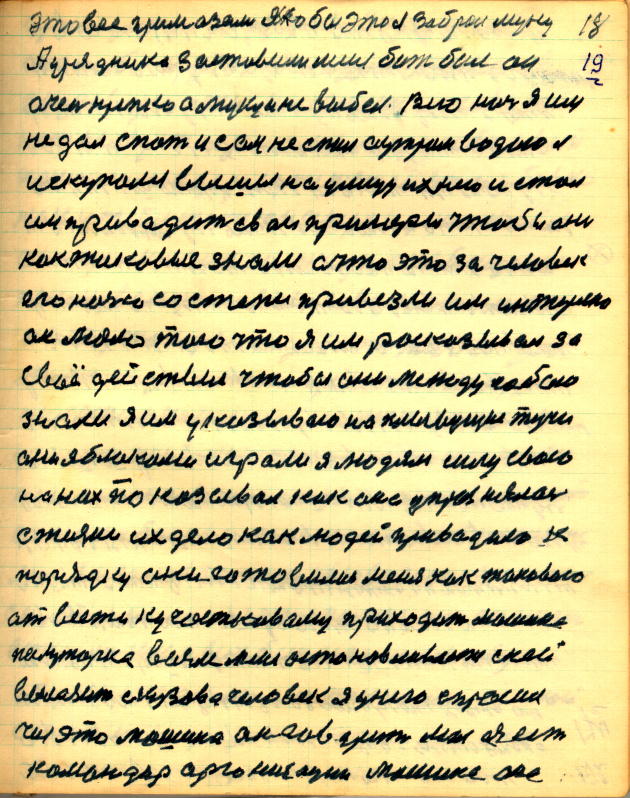 это все гримазам якобы этоя забрал муку 18
А урядника заставили мине был он 19
очен крепко а муки не вы бел. Всю ноч я им
не дал спат и сам не спал а утром водою я
искупали вышли на улицу ихнюю и стал
им привадит сваи примеры чтобы они
как таковые знали ачто это за человек
его начю со степи привезли им интересно
ок мало того что я им росказывал за
своё действия чтобы они между собою
знали я им указываю на плывущие тучи
они яблоками играли я людям силу свою
на них показывал как она управлялас
стояни их дело как людей привадило к
порядку они готовилис меня как такового
атвести ку частковаму приходит машина
палуторка возле мине остановливается с ней
вылазит скузова человек я унего спросил
чия это машина он говорит мая я ест
командир арганизации машина ого